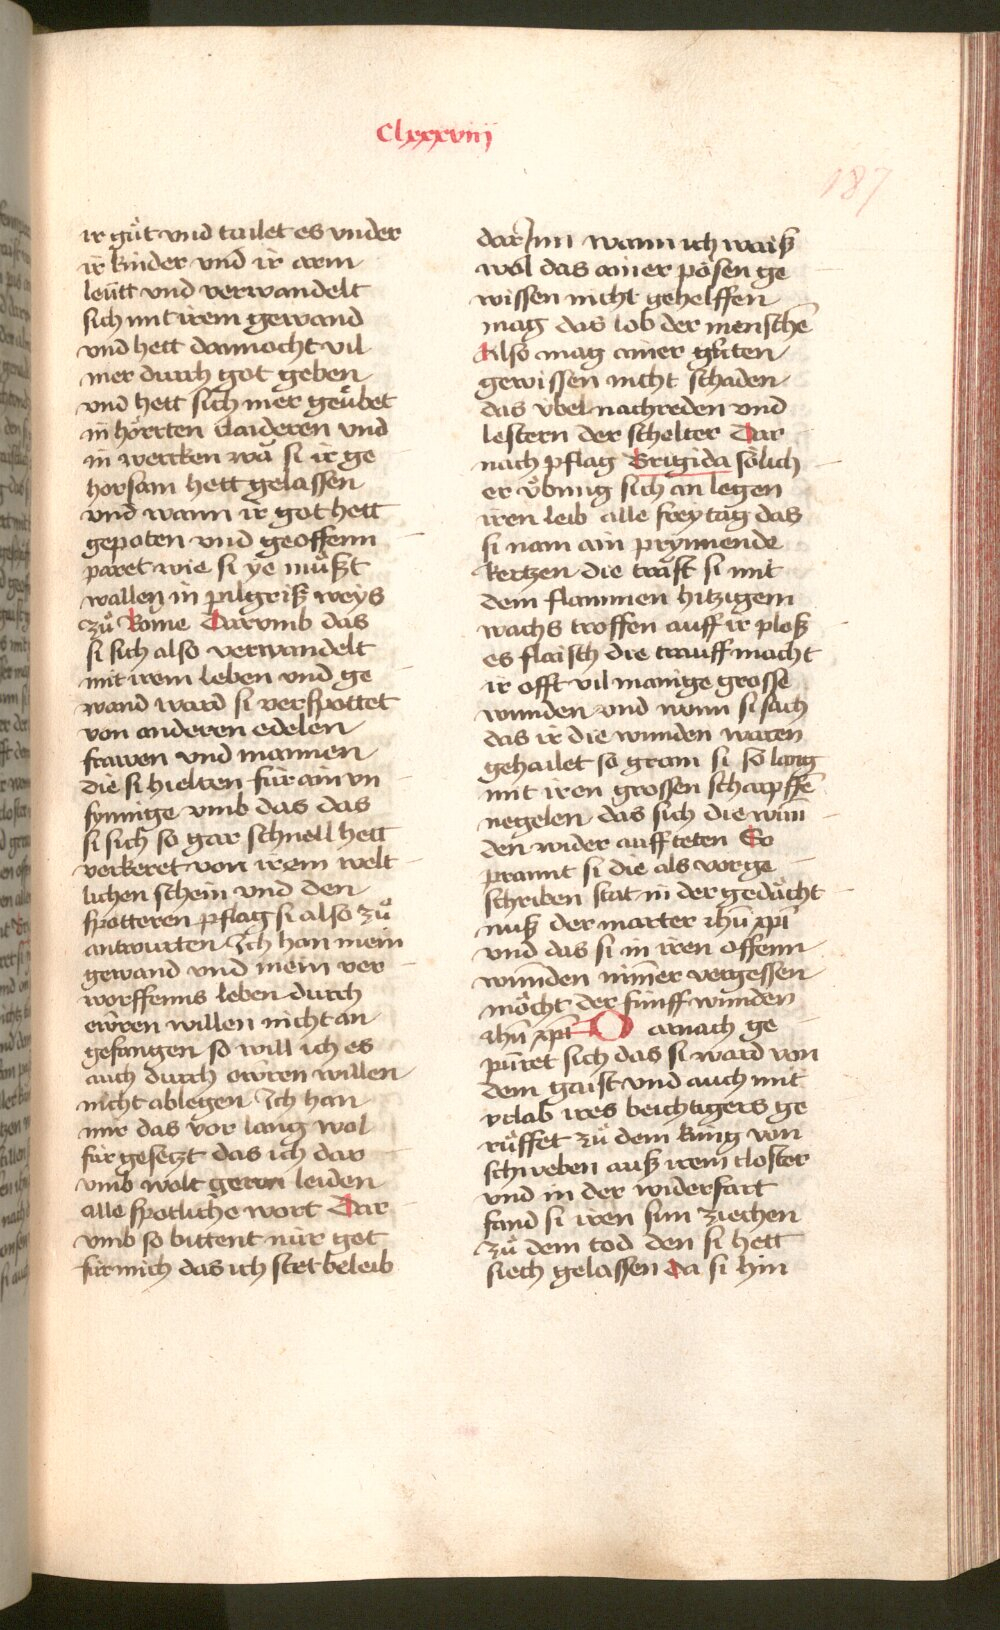 Clxxxviij
187
ir gůt vnd tailet es vnder
ir kinder vnd ir arm
leütt vnd verwandelt
sich mit irem gewand
vnd hett dannocht vil
mer durch got geben
vnd hett sich mer geübet
in hörtten claideren vnd
in wercken wa si ir ge
horsam hett gelassen
vnd wann ir got hett
gepoten vnd geoffenn
paret wie si ye müßt
wallen in pilgriß weys
zů Rome Darvmb das
si sich also verwandelt
mit irem leben vnd ge
wand ward si verspottet
von anderen edelen
frawen vnd mannen
die si hielten für ain vn
synnige vmb das das
si sich so gar schnell hett
verkeret von irem welt
lichen schein vnd den
spotteren pflag si also zů
antwurten Ich han mein
gewand vnd mein ver
worffenns leben durch
ewren willen nicht an
gefangen so will ich es
auch durch ewren willen
nicht ablegen Ich han
mir das vor lang wol
für gesetzt das ich dar
vmb wolt geren leiden
alle spotliche wort Dar
vmb so bittent mir got
für mich das ich stet beleib
darinn wann ich waiß
wol das ainer pösen ge
wissen nicht gehelffen
mag das lob der menschē
Also mag ainer gůten
gewissen nicht schaden
das vbel nachreden vnd
lestern der schelter Dar
nach pflag Brigida sölich
er vͤbung sich an legen
iren leib alle freytag das
si nam ain prynnende
kertzen die traft si mit
dem flammen hitzigem
wachs troffen auff ir ploß
es flaisch die trauff macht
ir offt vil manige grosse
wunden vnd wenn si sach
das ir die wunden waren
gehailet so gram si so lang
mit iren grossen scharpffē
negelen das sich die wun̄
den wider auff teten So
prannt si die als vorge
schriben stat in der gedächt
nuß der marter ihū xp̄i
vnd das si in iren offenn
wun̄den nim̄er vergessen
möcht der fünff wunden
ihū xp̄i Darnach ge
pu̅ret sich das si ward von
dem gaist vnd auch mit
vrlab ires beichtigers ge
rüffet zů dem king von
schweben auß irem closter
vnd in der widerfart
fand si iren sun ziechen
zů dem tod den si hett
siech gelassen da si hin